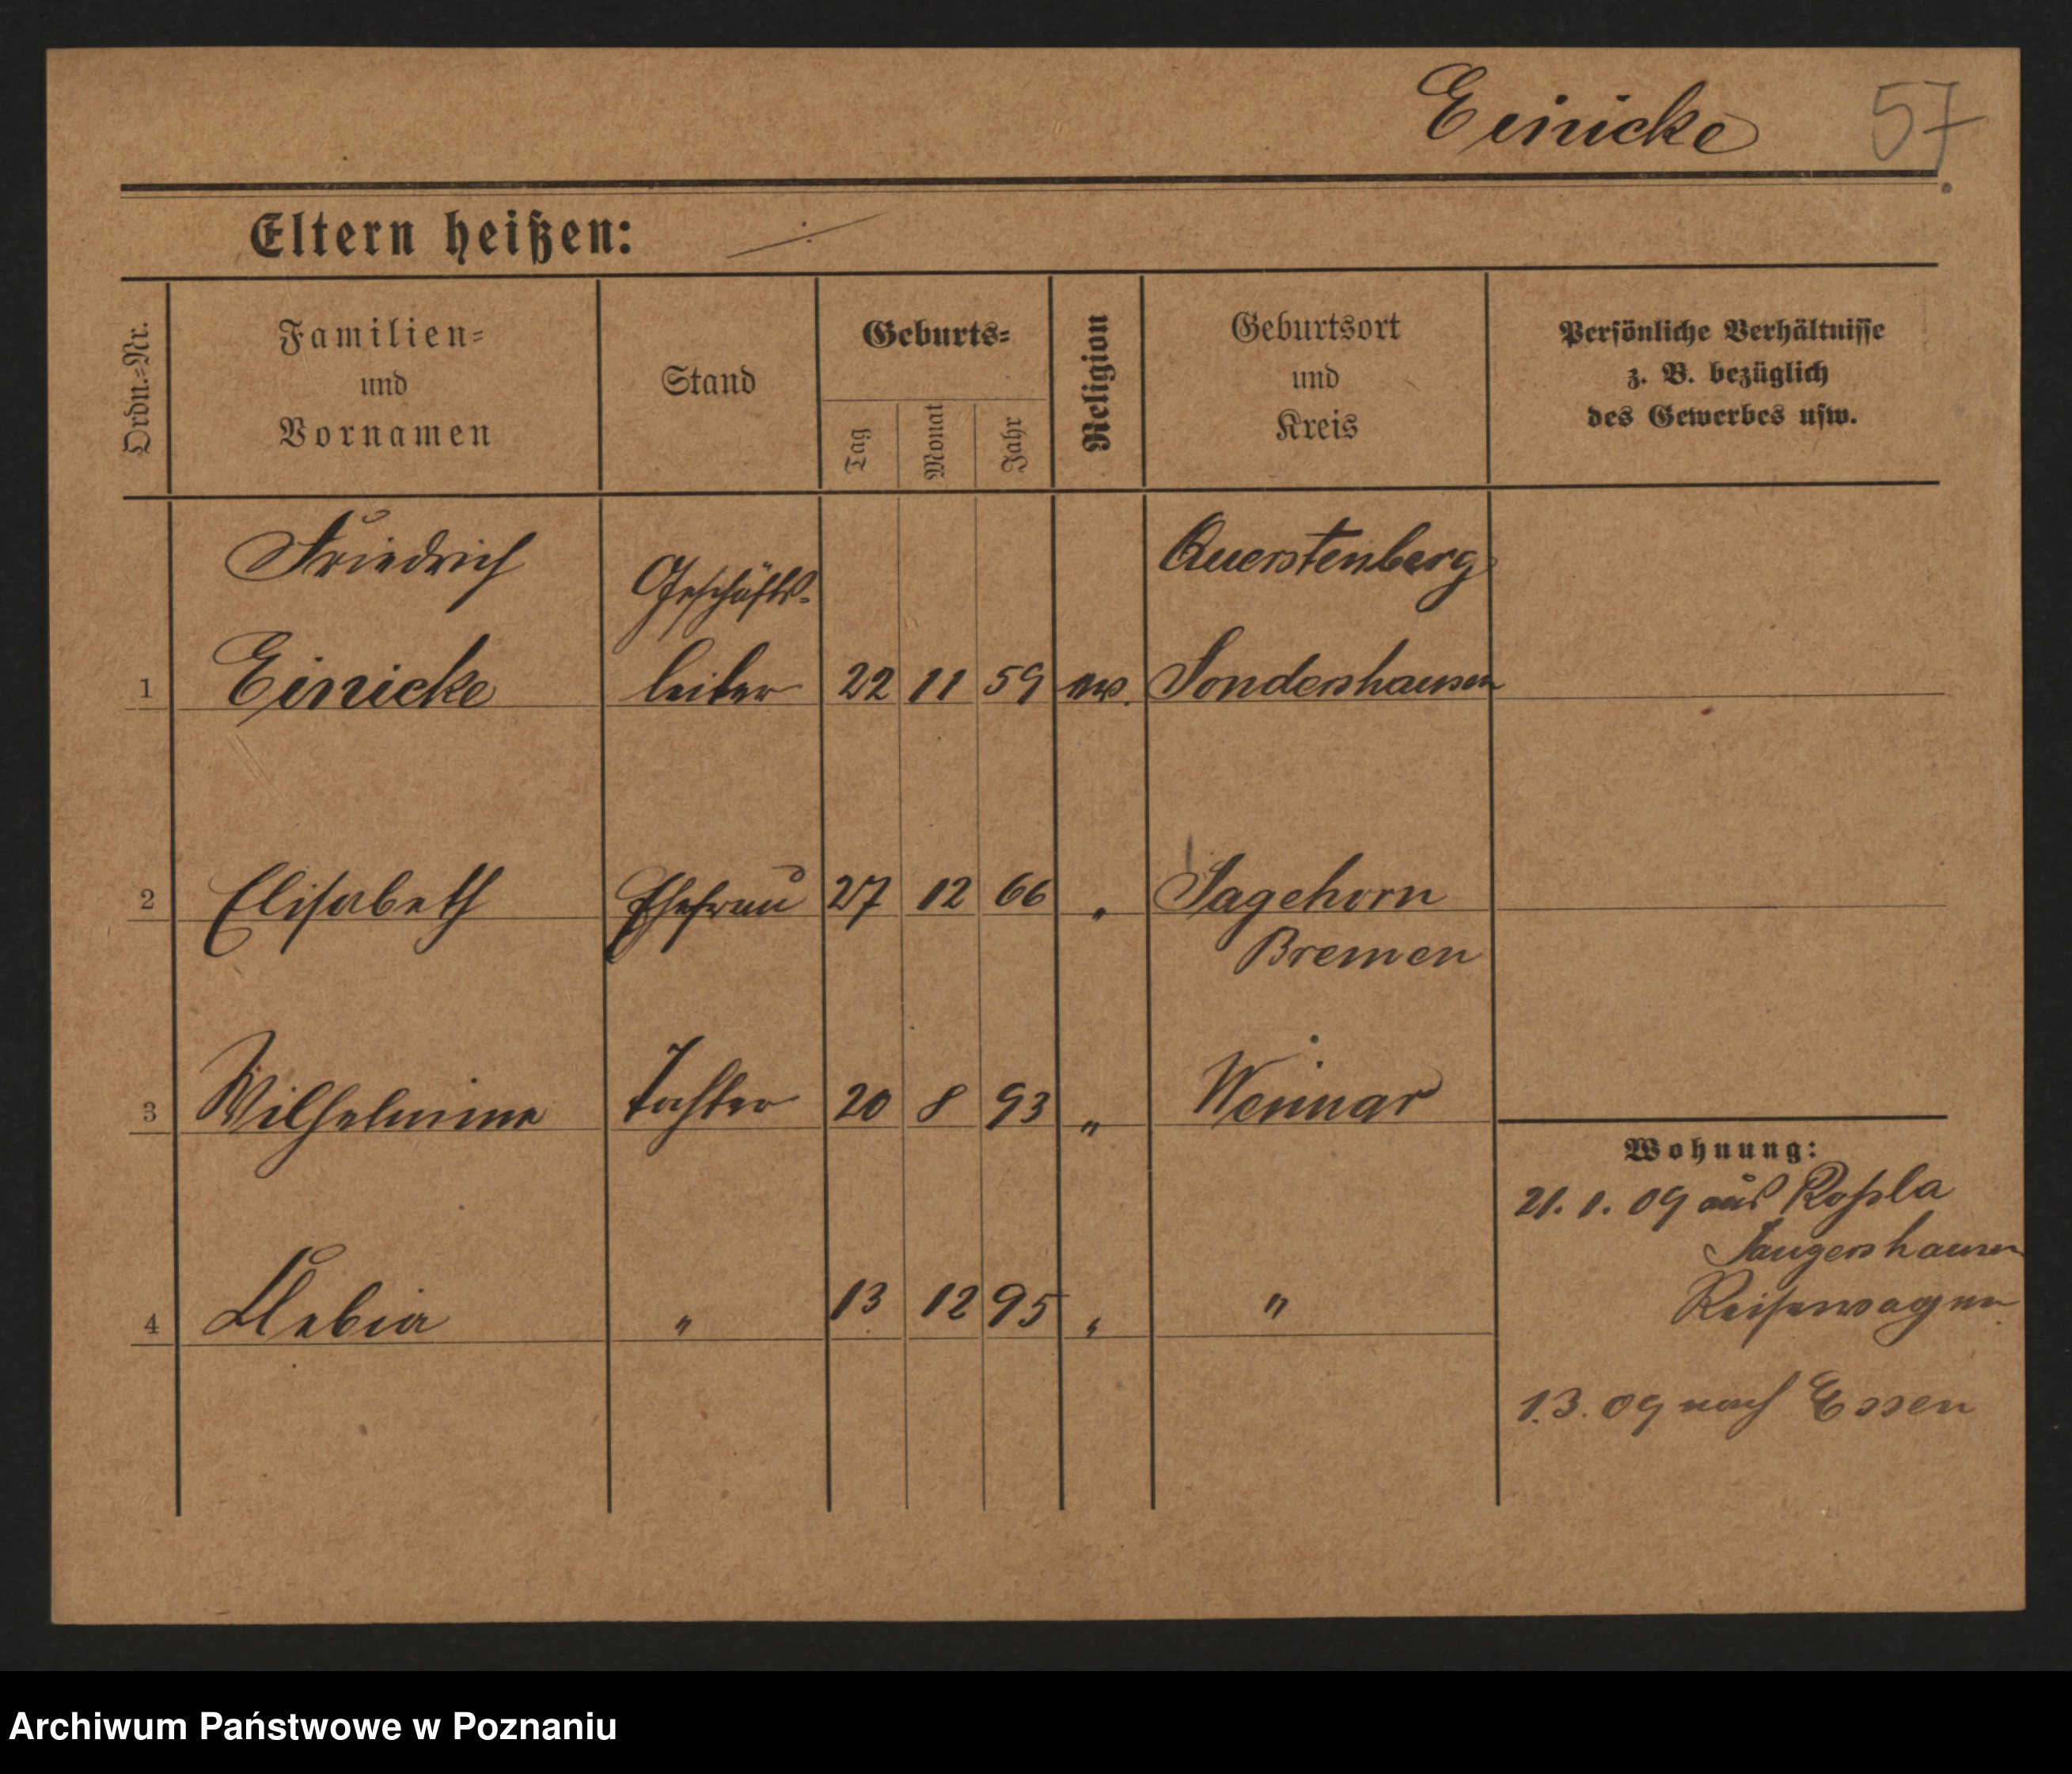 Einicke 57
Eltern heißen:
Ordn.=Nr.
Familien=
und
Vornamen
Stand
Geburts=
Tag
Monat
Jahr
Religion
Geburtsort
und
Kreis
Persönliche Verhältnisse
z. B. bezüglich
des Gewerbes usw.
Friedrich Geschäfts- Querstenberg
1 Einicke leiter 22 11 59 ev. Sondershausen
2 Elisabeth Ehefrau 27 12 66 " Sagehorn
Bremen
3 Wilhelmine Tochter 20 8 93 " Weimar
Wohnung:
21. 1. 09 aus Roßla
Sangershausen
Reisewagen
4 " 13 12 95 " "
1.3. 09 nach Essen
Archiwum Państwowe w Poznaniu